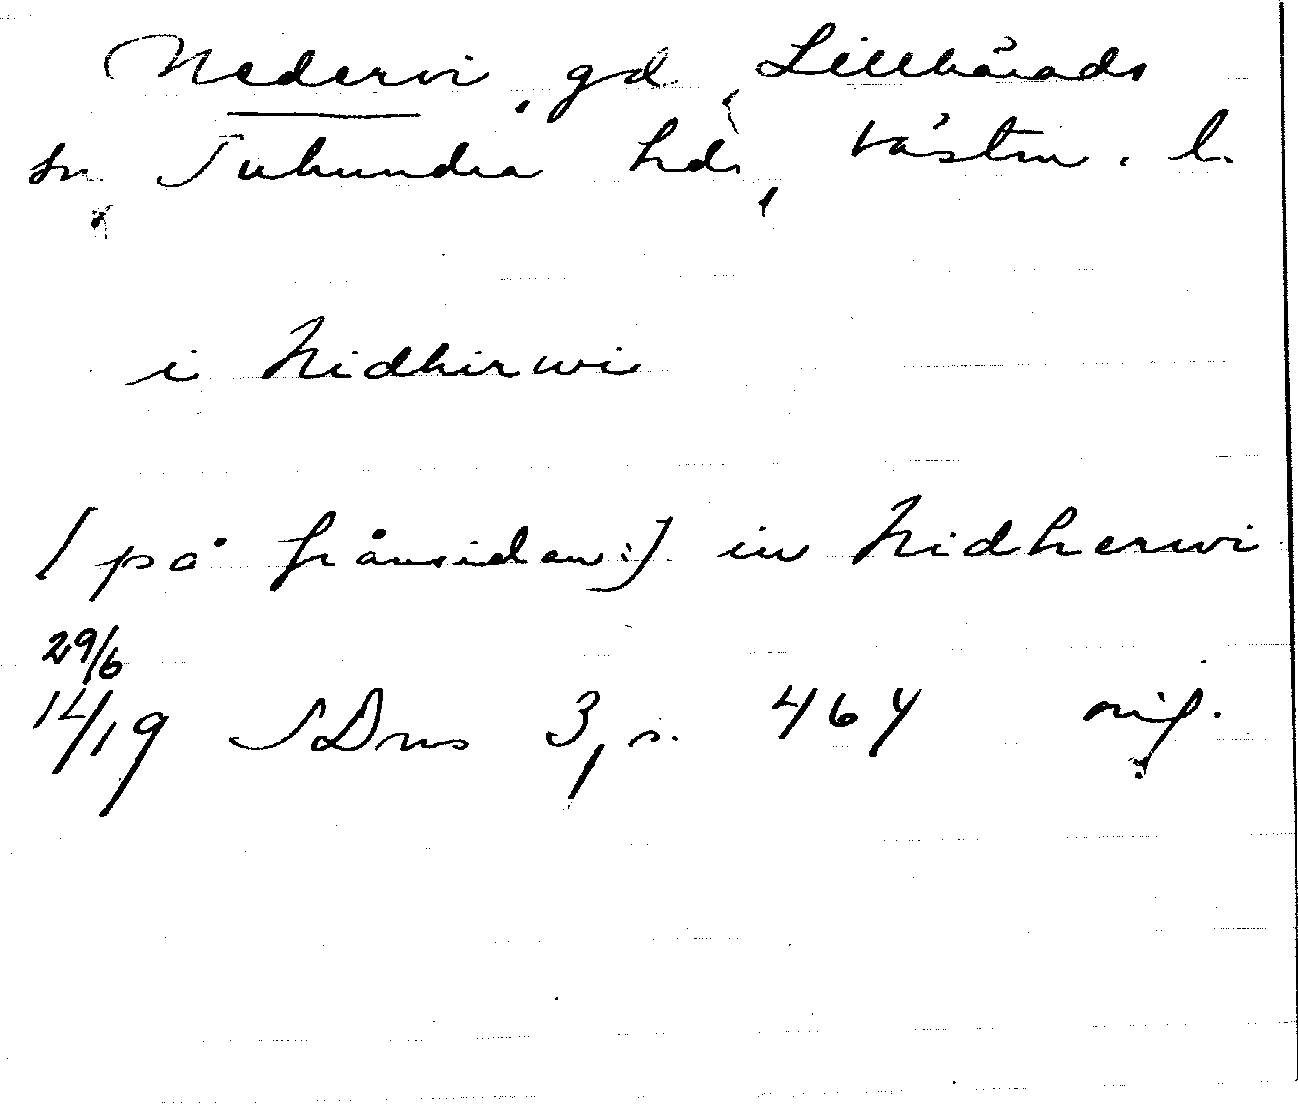 Nedervi, gd, Lillhärads
sn Tuhundra hd, Västm. l.
i Nidhirwi
(på frånsidan:) in Nidherwi
29/6
14/19 SDns 3, s. 464 orig.